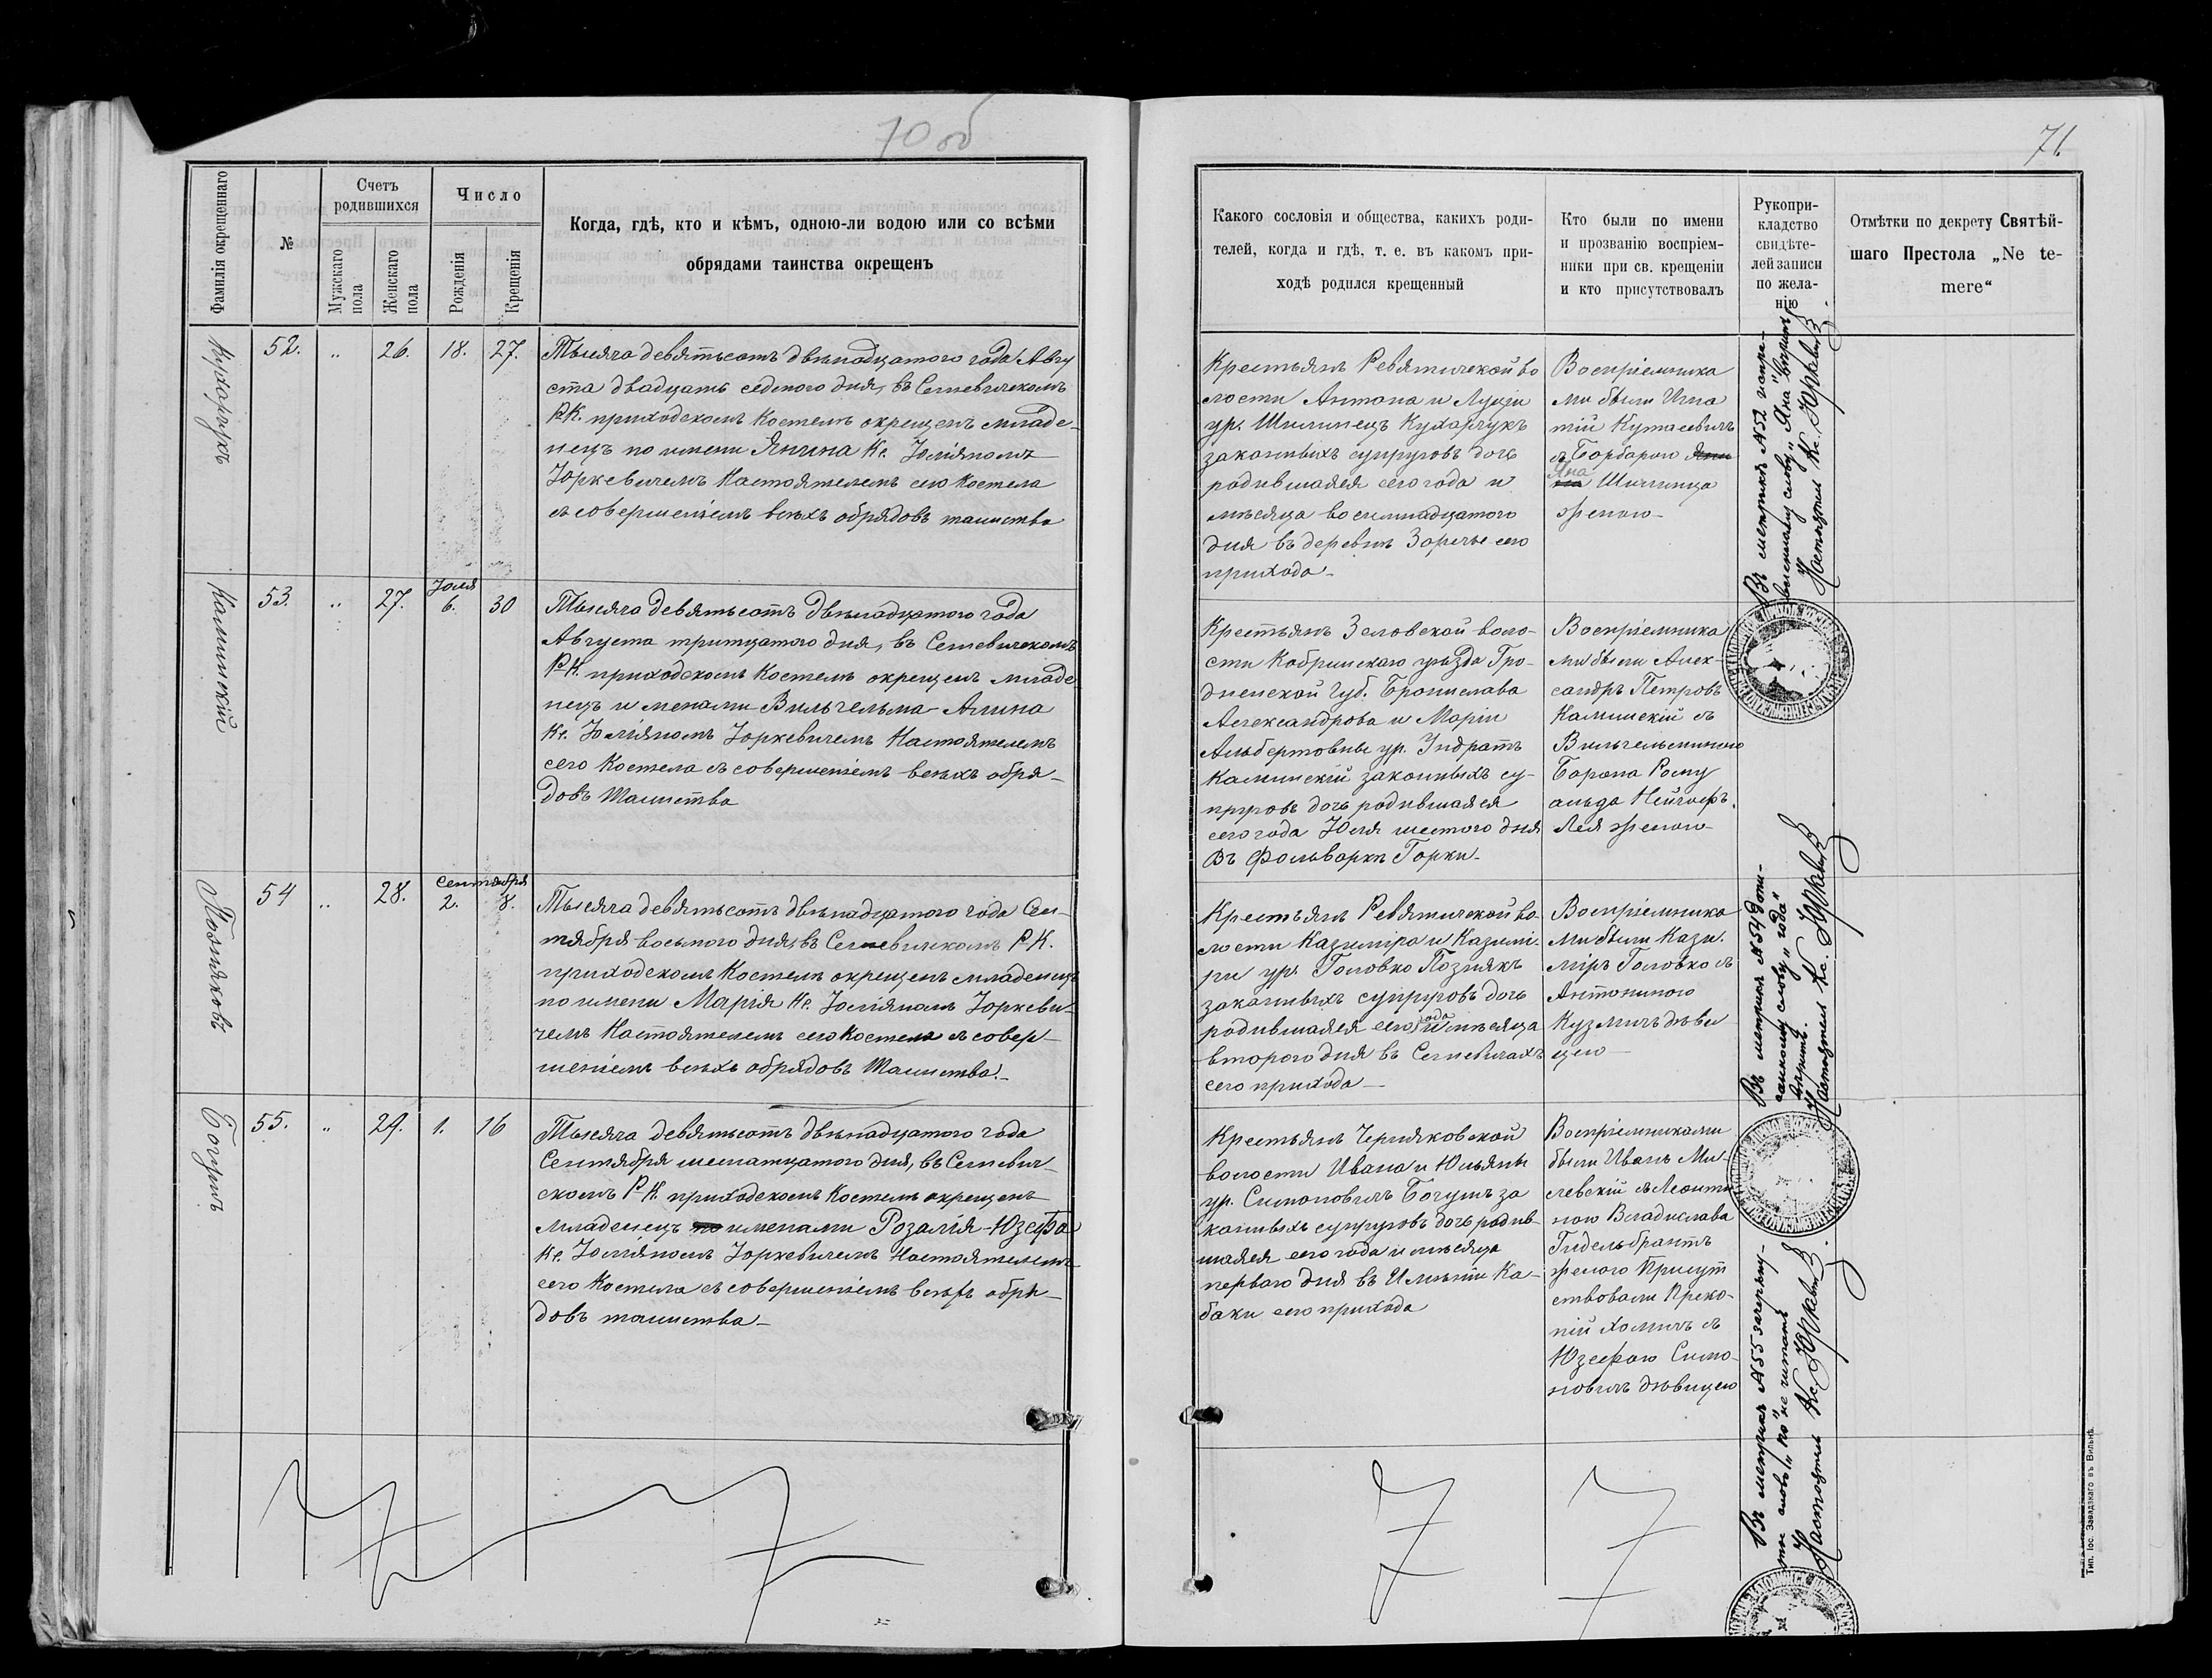 70 об
Фамилія окрещеннаго
№
Счетъ
родившихся
Мужскаго
пола
Женскаго
пола
Число
Рожденія
Крещенія
Когда, гдѣ, кто и кѣмъ, одною-ли водою или со всѣми
обрядами таинства окрещенъ
Кухарчукъ
52.
"
26.
18.
27.
Тысяча девятьсотъ двѣнадцатого года Авгу
ста двадцать седмого дня, въ Сегневическомъ
Р.К. приходскомъ Костелѣ окрещенъ младе-
нецъ по имени Янина Кс. Юліяномъ
Юркевичемъ Настоятелемъ сего Костела
съ совершеніемъ всѣхъ обрядовъ таинства
Каминскій
53.
"
27.
Юля
6.
30
Тысяча девятьсотъ двѣнадцатого года
Августа тритцатого дня, въ Сегневическомъ
Р.К. приходскомъ Костелѣ окрещенъ младе
нецъ именами Вильгельма Алина
Кс. Юліяномъ Юркевичемъ Настоятелемъ
сего Костела съ совершеніемъ всѣхъ обря-
довъ Таинства
Познякъ
54
"
28.
Сентября
2.
8.
Тысяча девятьсотъ двѣнадцатого года Сен-
тября восьмого дня, въ Сегневическомъ Р.К.
приходскомъ Костелѣ окрещенъ младенецъ
по имени Марія Кс. Юліяномъ Юркеви-
чемъ Настоятелемъ сего Костела съ совер-
шеніемъ всѣхъ обрядовъ Таинства.-
Богушъ
55.
"
29.
1.
16
Тысяча девятьсотъ двѣнадцатого года
Сентября шеснатцатого дня, въ Сегневич-
скомъ Р.К. приходскомъ Костелѣ окрещенъ
младенецъ по именами Розалія-Юзефа
Кс. Юліяномъ Юркевичемъ Настоятелемъ
сего Костела съ совершеніемъ всѣхъ обря-
довъ таинства-
71
Какого сословія и общества, какихъ роди-
телей, когда и гдѣ, т. е. въ какомъ при-
ходѣ родился крещенный
Кто были по имени
и прозванію воспріем-
ники при св. крещеніи
и кто присутствовалъ
Рукопри-
кладство
свидѣте-
лей записи
по жела-
нію
Отмѣтки по декрету Святѣй-
шаго Престола „Ne te-
mere“
Крестьянъ Ревятичской во
лости Антона и Луціи
ур. Шиминецъ Кухарчукъ
законныхъ супруговъ дочь
родившаяся сего года и
мѣсяца восемнадцатого
дня въ деревнѣ Заречье сего
прихода-
Воспріемника
ми были Игна
тій Куташевичъ
съ Барбарою Яни
Яна
на Шиминца
женою-
Въ метрикѣ №52
слову „Яна“ вѣрить
Настоятель Кс. Юркевичъ
Крестьянъ Зеловской воло-
сти Кобринскаго уѣзда Гро-
дненской Губ. Бронислава
Александрова и Маріи
Альбертовны ур. Индратъ
Каминскій законныхъ су-
пруговъ дочь родившаяся
сего года Юля шестого дня
въ Фольваркѣ Горки-
Воспріемника
ми были Алек-
сандръ Петровъ
Каминскій съ
Вильгельминою
Барона Рому
альда
женою-
Крестьянъ Ревятичской во
лости Казиміра и Казимі-
ри ур. Головко Познякъ
законныхъ супруговъ дочь
года
родившаяся сего и мѣсяца
второго дня въ Сегневичахъ
сего прихода-
Воспріемника
ми были Кази-
міръ Головко съ
Антониною
Кузмичъ дѣви
цею-
Въ метрикѣ №54 допи-
санному слову „года“
вѣрить.
Настоятель Кс. Юркевичъ
Крестьянъ Черняковской
волости Ивана и Юльяны
ур. Симоновичъ Богушъ за
конныхъ супруговъ дочь родив-
шаяся сего года и мѣсяца
перваго дня въ Имѣніи Ка-
баки сего прихода
Воспріемниками
были Иванъ Ми-
левскій съ Леонти
ною Владислава
Гидельбрантъ
женою Присут
ствовали Проко-
пій Хомичъ съ
Юзефою Симо-
новичъ дѣвицею
Въ метрикѣ №55 зачеркну-
тое слово „по“ не читать
Настоятель Кс. Юркевичъ
Тип. Іос. Завадзкаго въ Вильнѣ.